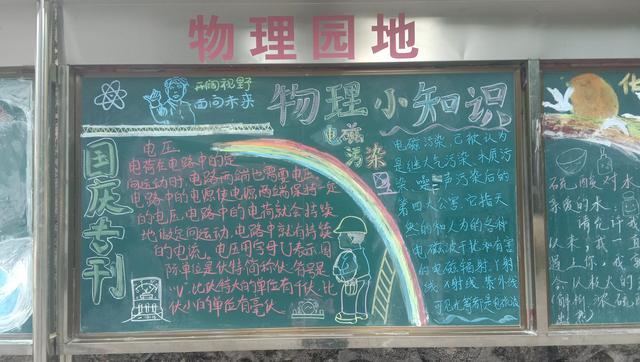 物理园地
开阔视野
面向未来
物理小知识
国庆专刊
电压
电荷在电路中的定
向运动时,电路两端也需要电压,
电路中的电源使电源两端保持一定
的电压,电路中的电荷就会持续
地做定向运动,电路中就有持续
的电流。电压用字母U表示,国
际单位是伏特,简称伏,符号是
“V”比伏特大的单位有千伏,比
伏小的单位有毫伏。
电磁
污染
电磁污染,它被认为
是继大气污染、水质污
染、噪声污染后的
第四大公害,它指天
然的和人为的各种
电磁波干扰和有害
的电磁辐射。
线 X射线 紫外线
可见光等都是电磁波
硫酸对水
亲爱的水
请允许我
以来,我
遇上你,我